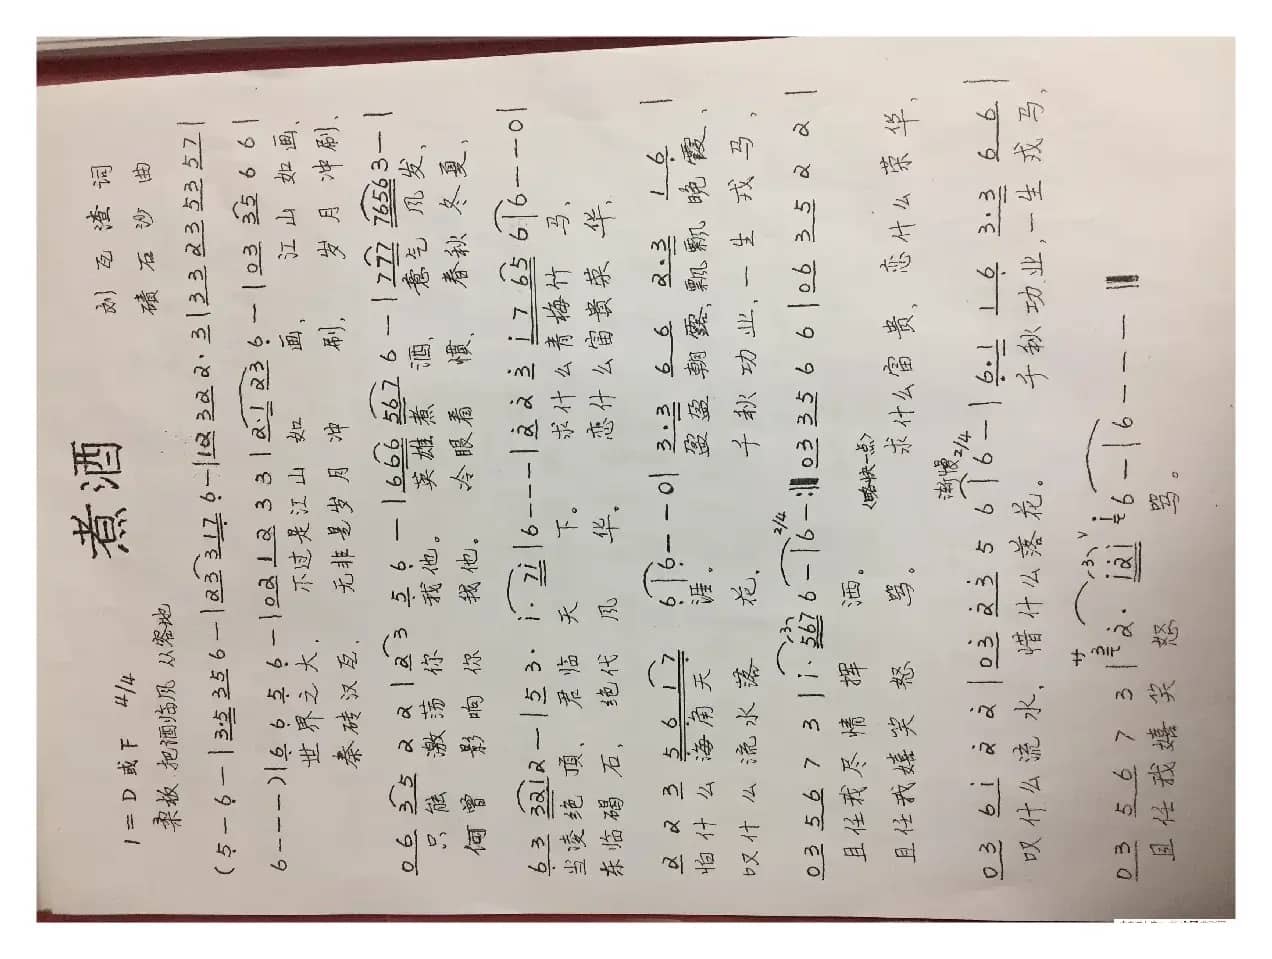 煮酒
1=D或F 4/4
柔板 把酒临风 从容地
刘瓦渣 词
碛石沙 曲
(5 - 6 - | 3·5 3 5 6 - | 2 3 3 1 7 6 - | 1 2 3 2 2 · 3 | 3 3 2 3 5 3 5 7 |
6 - - - ) | 6 6 5 6 - | 0 2 1 2 3 3 | 2·1 2 3 6 - | 0 3 3 5 6 6 |
世界之大. 不过是江山如画, 江山如画,
秦砖汉瓦. 无非是岁月冲刷, 岁月冲刷,
0 6 3 5 2 2 | 2 3 5 6 - | 6 6 6 5 6 7 6 - | 7 7 7 7 6 5 6 3 - |
只能激荡你我他。 英雄煮酒, 意气风发,
何曾影响你我他。 冷眼看惯, 春秋冬夏,
6 3 3 2 1 2 - | 5 3 · i · 7 i | 6 - - - | 2 2 3 i 7 6 5 6 | 6 - - - 0 |
当凌绝顶、君临天下。 求什么青梅竹马,
东临碣石, 绝代风华。 恋什么富贵荣华,
2 2 3 5 6 1 7 6 | 6 - - 0 | 3·3 6 6 2·3 1 6 |
怕什么海角天涯。 盈盈朝露, 飘飘晚霞,
叹什么流水落花, 千秋功业, 一生戎马,
0 3 5 6 7 3 | i · 5 6 7 6 - | 2/4 6 - :‖ 0 3 3 5 6 6 | 0 6 3 5 2 2 |
且任我尽情挥洒。
(略快一点)
且任我嬉笑怒骂。 求什么富贵, 恋什么荣华,
渐慢
0 3 6 i 2 2 | 0 3 2 3 5 6 | 2/4 6 - | 6·1 1 6 3·3 6 6 |
叹什么流水, 惜什么落花。 千秋功业, 一生戎马,
0 3 5 6 7 3 | 2 · i 2 i 6 - | 6 - - - ‖
且任我嬉笑怒骂。